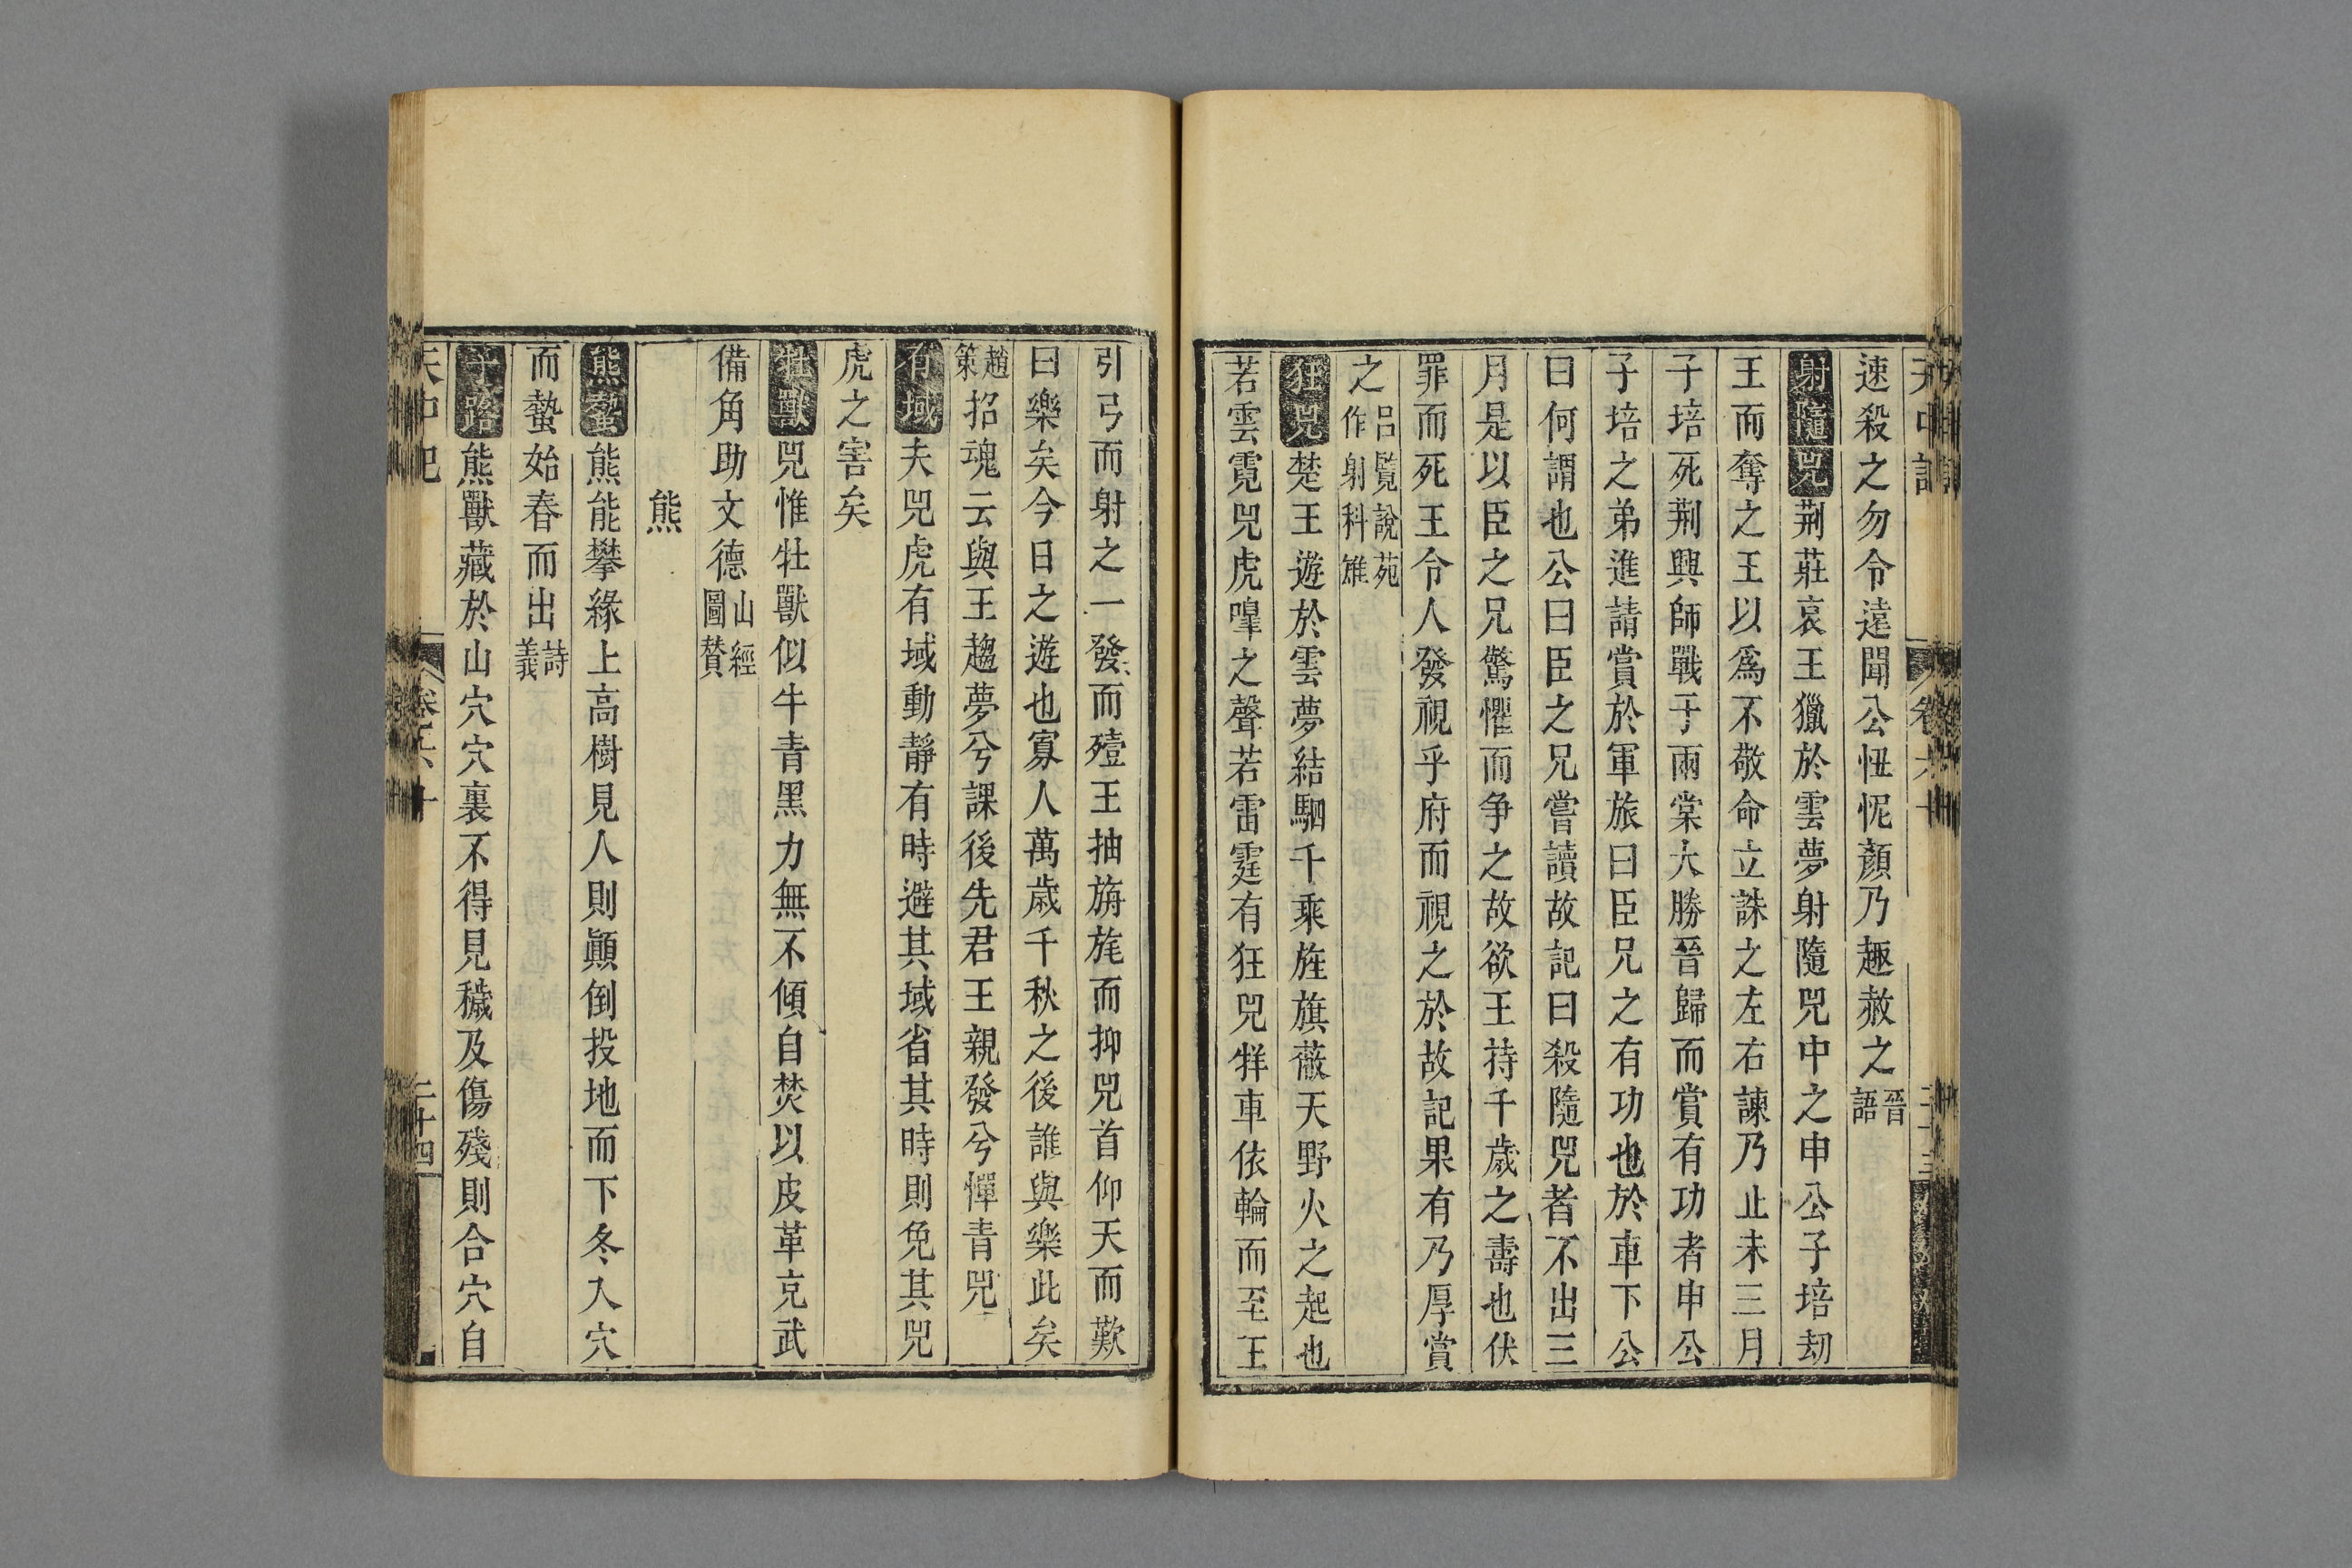 速殺之勿令遠聞公忸怩顏乃趣赦之晉語
射隨兕荆莊哀王獵於雲夢射隨兕中之申公子培刼
王而奪之王以爲不敬命立誅之左右諫乃止未三月
子培死荆興師戰于兩棠大勝晉歸而賞有功者申公
子培之弟進請賞於軍旅曰臣兄之有功也於車下公
曰何謂也公曰臣之兄嘗讀故記曰殺隨兕者不出三
月是以臣之兄驚懼而争之故欲王持千歲之壽也伏
罪而死王令人發視乎府而視之於故記果有乃厚賞
之呂覽說苑作射科雉
狂兕楚王遊於雲夢結駟千乘旌旗蔽天野火之起也
若雲霓兕虎嘷之聲若雷霆有狂兕牂車依輪而至王
引弓而射之一發而殪王抽旃旄而抑兕首仰天而歎
曰樂矣今日之遊也寡人萬歲千秋之後誰與樂此矣
趙策招魂云與王趨夢兮課後先君王親發兮憚青兕
有域夫兕虎有域動靜有時避其域省其時則免其兕
虎之害矣
壯獸兕惟牡獸似牛青黑力無不傾自焚以皮革克武
備角助文德山經圖贊
熊
熊蟄熊能攀緣上高樹見人則顚倒投地而下冬入穴
而蟄始春而出詩義
子路熊獸藏於山穴穴裏不得見穢及傷殘則合穴自
天中記 卷六十 二十四